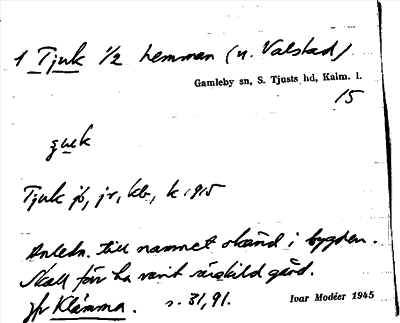 1 Tjuk 1/2 hemman (u. Valstad)
Gamleby sn, S. Tjusts hd, Kalm. l.
15
Tjuk jb, jr, kb, k 1915
Anledn. till namnet okänd i bygden.
Skall förr ha varit särskild gård.
Jfr Klämma. s. 31, 91.
Ivar Modéer 1945